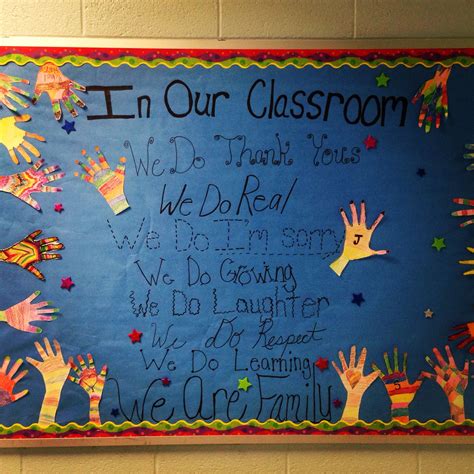 In Our Classroom
We Do Thank Yous
We Do Real
We Do I'm sorry
We Do Growing
We Do Laughter
We Do Respect
We Do Learning
We Are Family
J